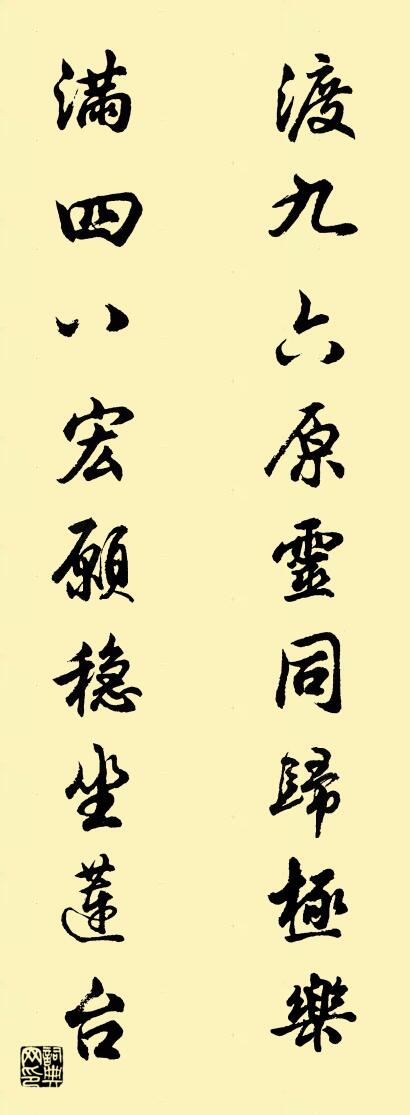 渡九六原靈同歸極樂
滿四八宏願穩坐蓮台
詞典網印